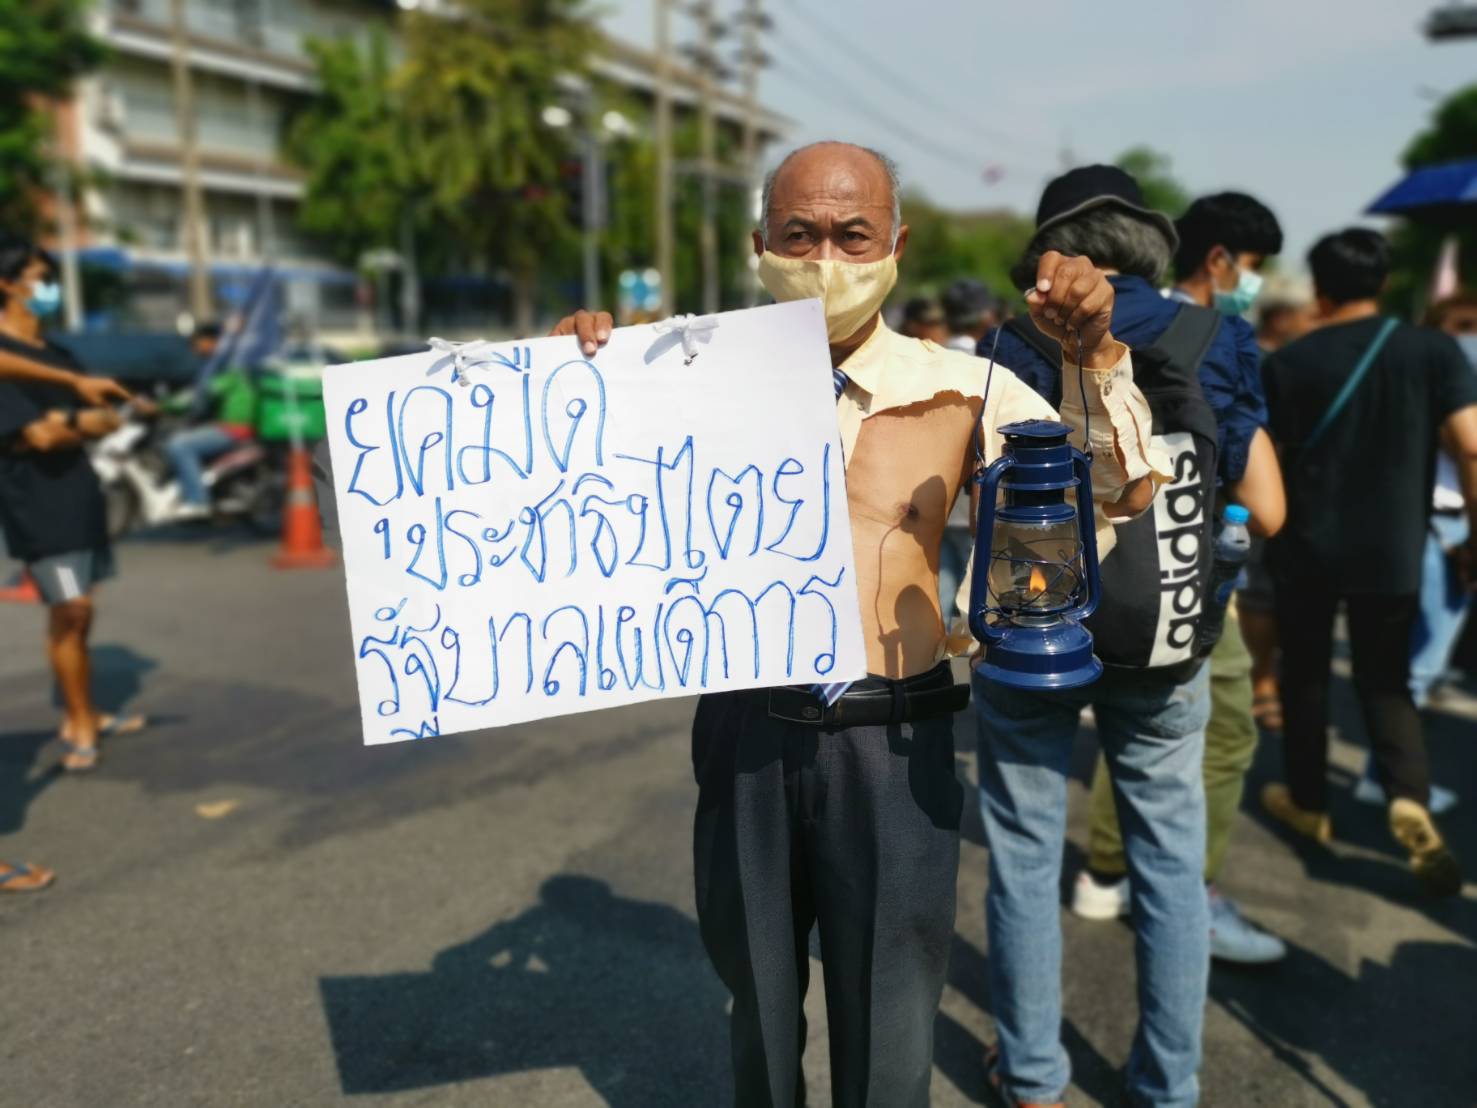 ยุคมืด
ประชาธิปไตย
รัฐบาลเผด็การ
adidas